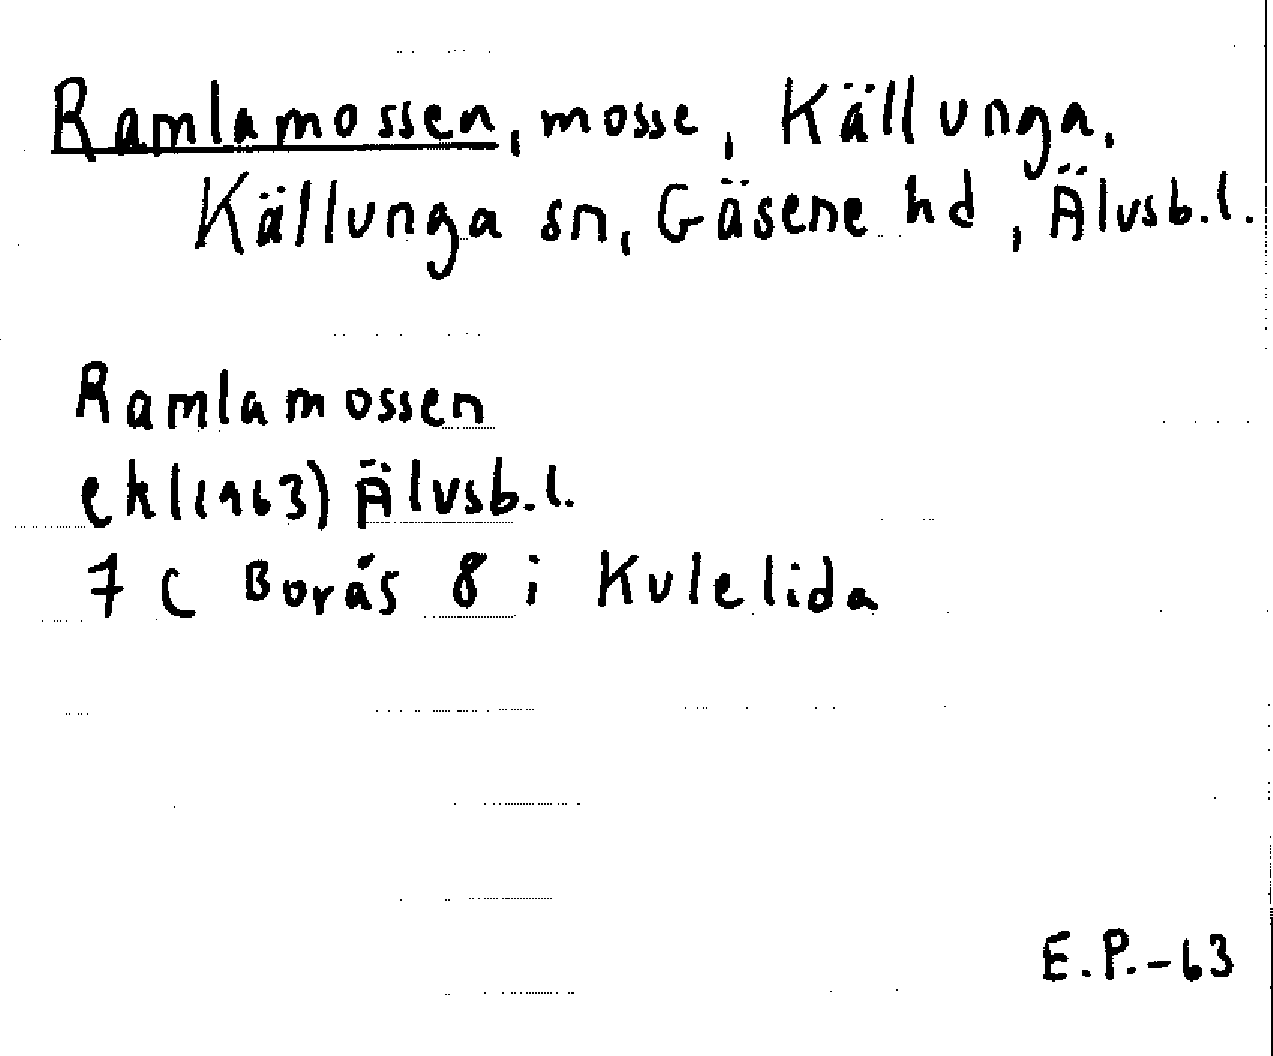 Ramlamossen, mosse, Källunga,
Källunga sn, Gäsene hd, Älvsb.l.
Ramlamossen
ekl(1963) Älvsb.l.
7 C Borås 8 i Kulelida
E.P.-63